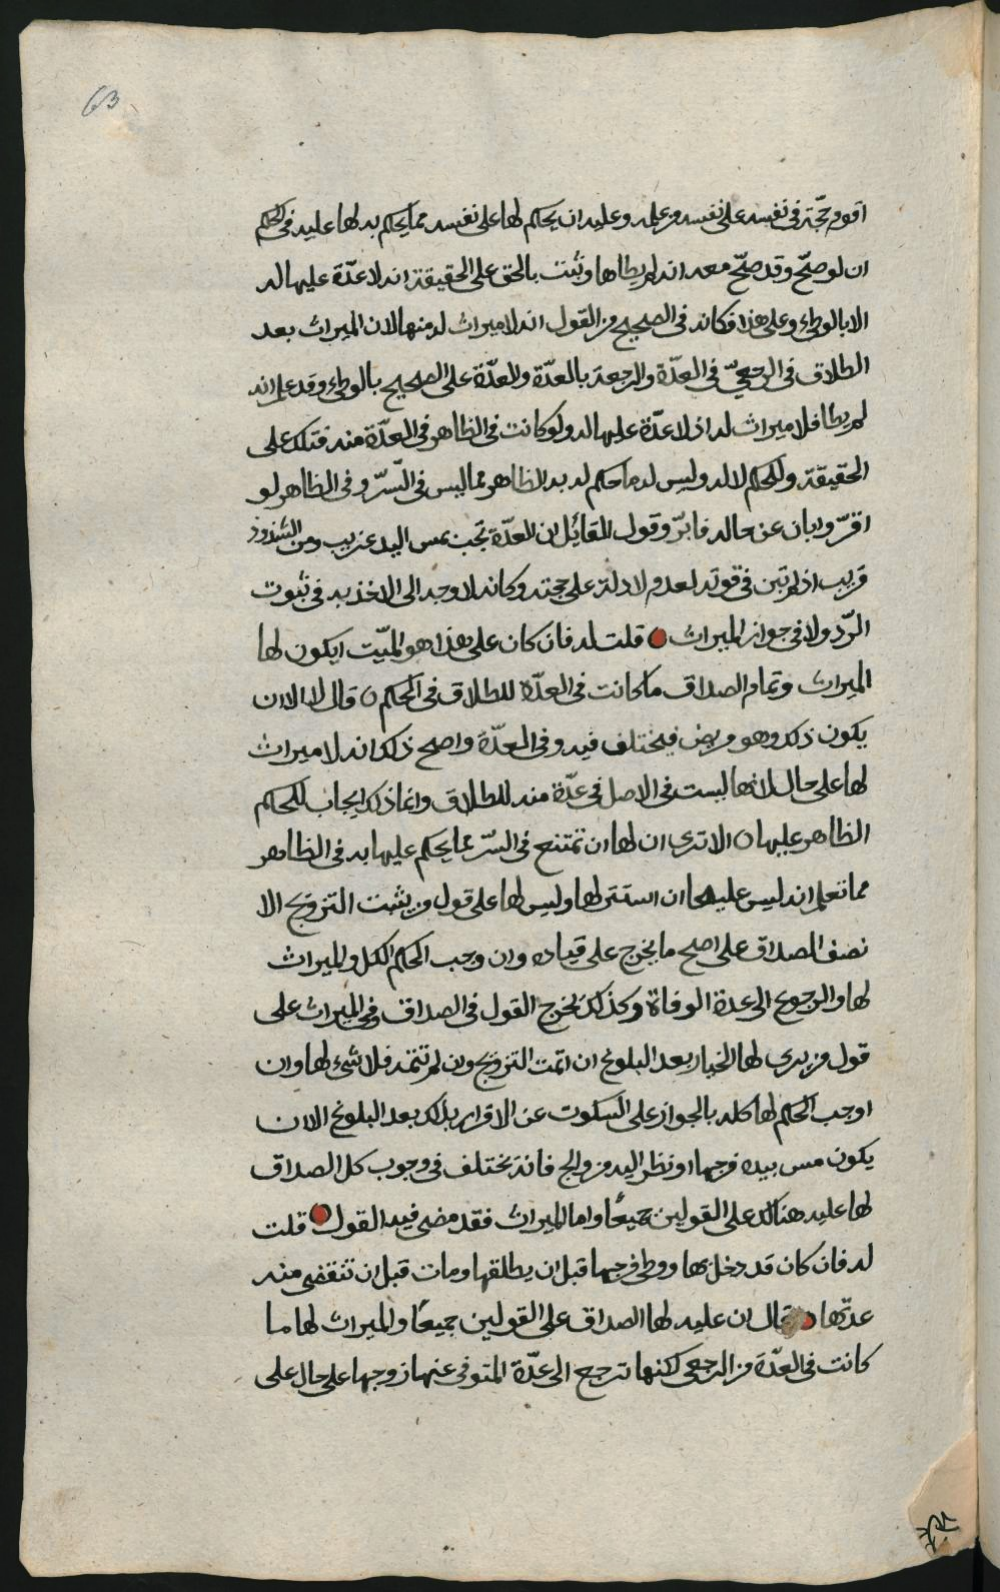 63
اقوم حجّة في نفسه على نفسه من علمه وعليه ان يحكم لها على نفسه مما يحكم به لها عليه في الحكم
ان لو صحّ وقد صحّ معه انه لم يطاها وثبت بالحق على الحقيقة انه لا عدّة عليها له
الا بالوطئ وعلى هذا فكانه في الصحيح من القول انه لا ميراث له منها لان الميراث بعد
الطلاق في الرجعيّ في العدّة والرجعة بالعدّة والعدّة على الصحيح بالوطئ وقد علم انه
لم يطا فلا ميراث له اذ لا عدّة عليها له ولو كانت في الظاهر في العدّة منه فتلك على
الحقيقة وللحكم لا له وليس له ما حكم له به الظاهر مما ليس في السّر وفي الظاهر لو
اقرّ وابان عن حاله فابرّ وقول القائل ان العدّة تجب بمس اليد غريب ومن الشذوذ
قريب اذ لم تبن في قوته لعدم الادلة على حجته وكانه لا وجه الى الاخذ به في ثبوت
الرّد ولا في جواز الميراث قلت له فان كان على هذا هو الميّت ايكون لها
الميراث وتمام الصداق ما كانت في العدّة للطلاق في الحكم ٥ قال لا الا ان
يكون ذلك وهو مريض فيختلف فيه وفي العدّة واصح ذلك انه لا ميراث
لها على حال لانها ليست في الاصل في عدّة منه للطلاق وانما ذلك ايجاب للحكم
الظاهر عليها ٥ الا ترى ان لها ان تمتنع في السّر عما يحكم عليها به في الظاهر
مما تعلم انه ليس عليها ان استتر لها وليس لها على قول من يثبت التزويج الا
نصف الصداق على اصح ما يخرج على قياده وان وجب الحكم الكل والميراث
لها والرجوع الى عدة الوفاة وكذلك يخرج القول في الصداق وفي الميراث على
قول من يرى لها الخيار بعد البلوغ ان اتمت التزويج وان لم تتمه فلا شئ لها وان
اوجب الحكم لها كله بالجواز على السكوت عن الاقرار بذلك بعد البلوغ الا ان
يكون مس بيده فرجها او نظر اليه من والج فانه يختلف في وجوب كل الصداق
لها عليه هنالك على القولين جميعًا واما الميراث فقد مضى فيه القول قلت
له فان كان قد دخل بها ووطئ فرجها قبل ان يطلقها ومات قبل ان تنقضي منه
عدتها قال ان عليه لها الصداق على القولين جميعًا والميراث لها ما
كانت في العدّة من الرجعي لكنها ترجع الى عدّة المتوفى عنها زوجها على حال على